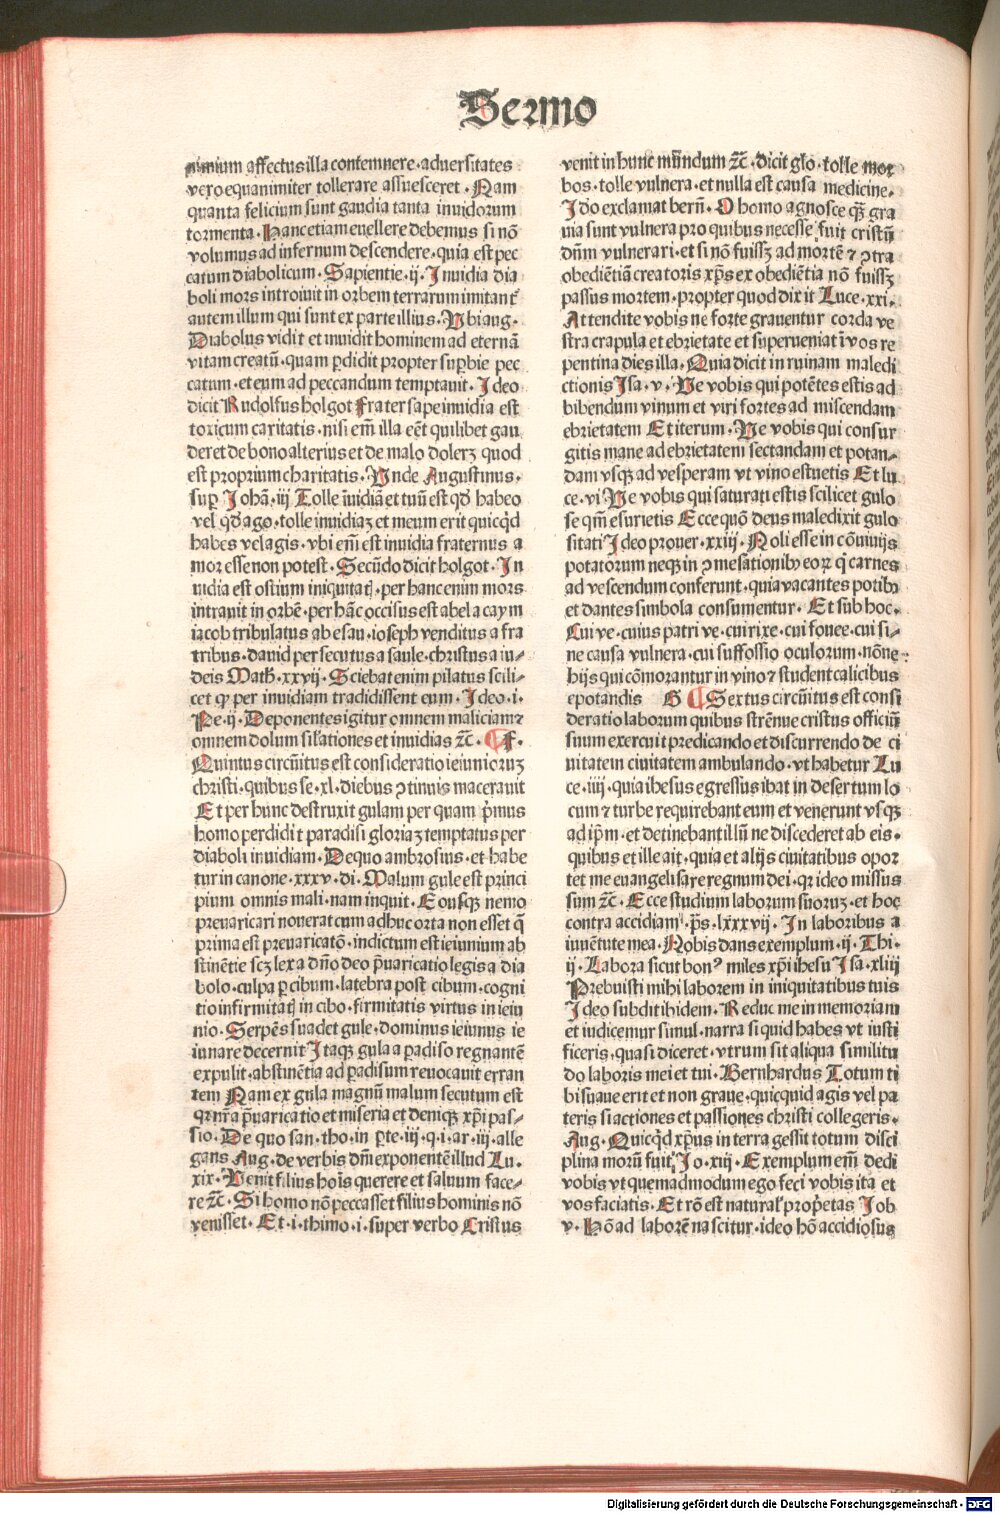 Sermo
nimium affectus illa contemnere. aduersitates
vero equanimiter tollerare assuescere. Nam
quanta felicium sunt gaudia tanta inuidorum
tormenta. Hanc etiam euellere debemus si nō
volumus ad infernum descendere. quia est pec
catum diabolicum. Sapientie. ij. Inuidia dia
boli mors introiuit in orbem terrarum imitant᷑
autem illum qui sunt ex parte illius. Vbi aug.
Diabolus vidit et inuidit hominem ad eternā
vitam creatū. quam ꝑdidit propter suꝑbie pec
catum. et eum ad peccandum temptauit. Ideo
dicit Rudolfus holgot Frater sape inuidia est
toxicum caritatis. nisi em̄ illa eēt quilibet gau
deret de bono alterius et de malo dolerꝫ quod
est proprium charitatis. Vnde Augustinus.
suꝑ Johā. iij Tolle īuidiā et tuū est qd̄ habeo
vel qd̄ ago. tolle inuidiaꝫ et meum erit quicq̇d
habes vel agis. vbi em̄ est inuidia fraternus a
mor esse non potest. Secūdo dicit holgot. In
uidia est ostium iniquitatꝭ. per hanc enim mors
intrauit in orbē. per hāc occisus est abel a caym
iacob tribulatus ab esau. ioseph venditus a fra
tribus. dauid persecutus a saule. christus a iu-
deis Math̄. xxvij. Sciebat enim pilatus scili-
cet qꝫ per inuidiam tradidissent eum. Ideo. i.
Pe. ij. Deponentes igitur omnem maliciam ⁊
omnem dolum sil̄ationes et inuidias ⁊c̄. ¶ F.
Quintus circūitus est consideratio ieiunioruꝫ
christi. quibus se. xl. diebus ꝯtinuis macerauit
Et per hunc destruxit gulam per quam p̄mus
homo perdidit paradisi gloriaꝫ temptatus per
diaboli inuidiam. De quo ambrosius. et habe
tur in canone. xxxv. di. Malum gule est princi
pium omnis mali. nam inquit. Eousqꝫ nemo
preuaricari nouerat cum adhuc orta non esset q̄
prima est preuaricatō. indictum est ieiunium ab
stinētie scꝫ lex a dn̄o deo p̄uaricatio legis a dia
bolo. culpa ꝑ cibum. latebra post cibum. cogni
tio infirmitatꝭ in cibo. firmitatis virtus in ieiu
nio. Serpēs suadet gule. dominus ieiunus ie
iunare decernit Itaqꝫ gula a ꝑadiso regnantē
expulit. abstinētia ad ꝑadisum reuocauit erran
tem Nam ex gula magnū malum secutum est
qꝛ nr̄a p̄uaricatio et miseria et deniqꝫ xp̄i pas-
sio. De quo san. tho. in ꝑte. iij. q. i. ar. iij. alle
gans Aug. de verbis dn̄i exponentē illud Lu.
xix. Venit filius hoīs querere et saluum face-
re ⁊c̄. Si homo nō peccasset filius hominis nō
venisset. Et. i. thimo. i. super verbo Cristus
venit in hunc mūndum ⁊c̄. dicit glo. tolle mor
bos. tolle vulnera. et nulla est causa medicine.
Idō exclamat bern̄. O homo agnosce qꝫ gra
uia sunt vulnera pro quibus necesse fuit cristū
dn̄m vulnerari. et si nō fuissꝫ ad mortē ⁊ ꝯtra
obediētiā creatoris xp̄s ex obediētia nō fuissꝫ
passus mortem. propter quod dixit Luce. xxi.
Attendite vobis ne forte grauentur corda ve
stra crapula et ebrietate et superueniat ī vos re
pentina dies illa. Quia dicit in ruinam maledi
ctionis Isa. v. Ve vobis qui potētes estis ad
bibendum vinum et viri fortes ad miscendam
ebrietatem Et iterum. Ve vobis qui consur
gitis mane ad ebrietatem sectandam et potan-
dam vsqꝫ ad vesperam vt vino estuetis Et lu
ce. vi Ve vobis qui saturati estis scilicet gulo
se qm̄ esurietis Ecce quō deus maledixit gulo
sitati Ideo prouer. xxiij. Noli esse in cōuiuijs
potatorum neqꝫ in ꝯmesationibꝫ eoꝝ q̇ carnes
ad vescendum conferunt. quia vacantes potibꝫ
et dantes simbola consumentur. Et sub hoc.
Cui ve. cuius patri ve. cui rixe. cui fouee. cui si-
ne causa vulnera. cui suffossio oculorum. nōne
hijs qui cōmorantur in vino ⁊ student calicibus
epotandis G ¶ Sextus circūitus est consi
deratio laborum quibus strēnue cristus officiū
suum exercuit predicando et discurrendo de ci
uitatem ciuitatem ambulando. vt habetur Lu
ce. iiij. quia ihesus egressus ibat in desertum lo
cum ⁊ turbe requirebant eum et venerunt vsqꝫ
ad ip̄m. et detinebant illū ne discederet ab eis.
quibus et ille ait. quia et alijs ciuitatibus opor
tet me euangelisare regnum dei. qꝛ ideo missus
sum ⁊c̄. Ecce studium laborum suoruꝫ. et hoc
contra accidiam. ps̄. lxxxvij. In laboribus a
iuuētute mea. Nobis dans exemplum. ij. Thi.
ij. Labora sicut bonꝰ miles xp̄i ihesu Isa. xliij
Prebuisti mihi laborem in iniquitatibus tuis
Ideo subdit ibidem. Reduc me in memoriam
et iudicemur simul. narra si quid habes vt iusti
ficeris. quasi diceret. vtrum sit aliqua similitu
do laboris mei et tui. Bernhardus Totum ti
bi suaue erit et non graue. quicquid agis vel pa
teris si actiones et passiones christi collegeris.
Aug. Quicq̇d xp̄us in terra gessit totum disci
plina morū fuit. Jo. xiij. Exemplum em̄ dedi
vobis vt quemadmodum ego feci vobis ita et
vos faciatis. Et rō est natural̄ prop̄etas Job
v. Hō ad laborē nascitur. ideo hō accidiosus
Digitalisierung gefördert durch die Deutsche Forschungsgemeinschaft - DFG